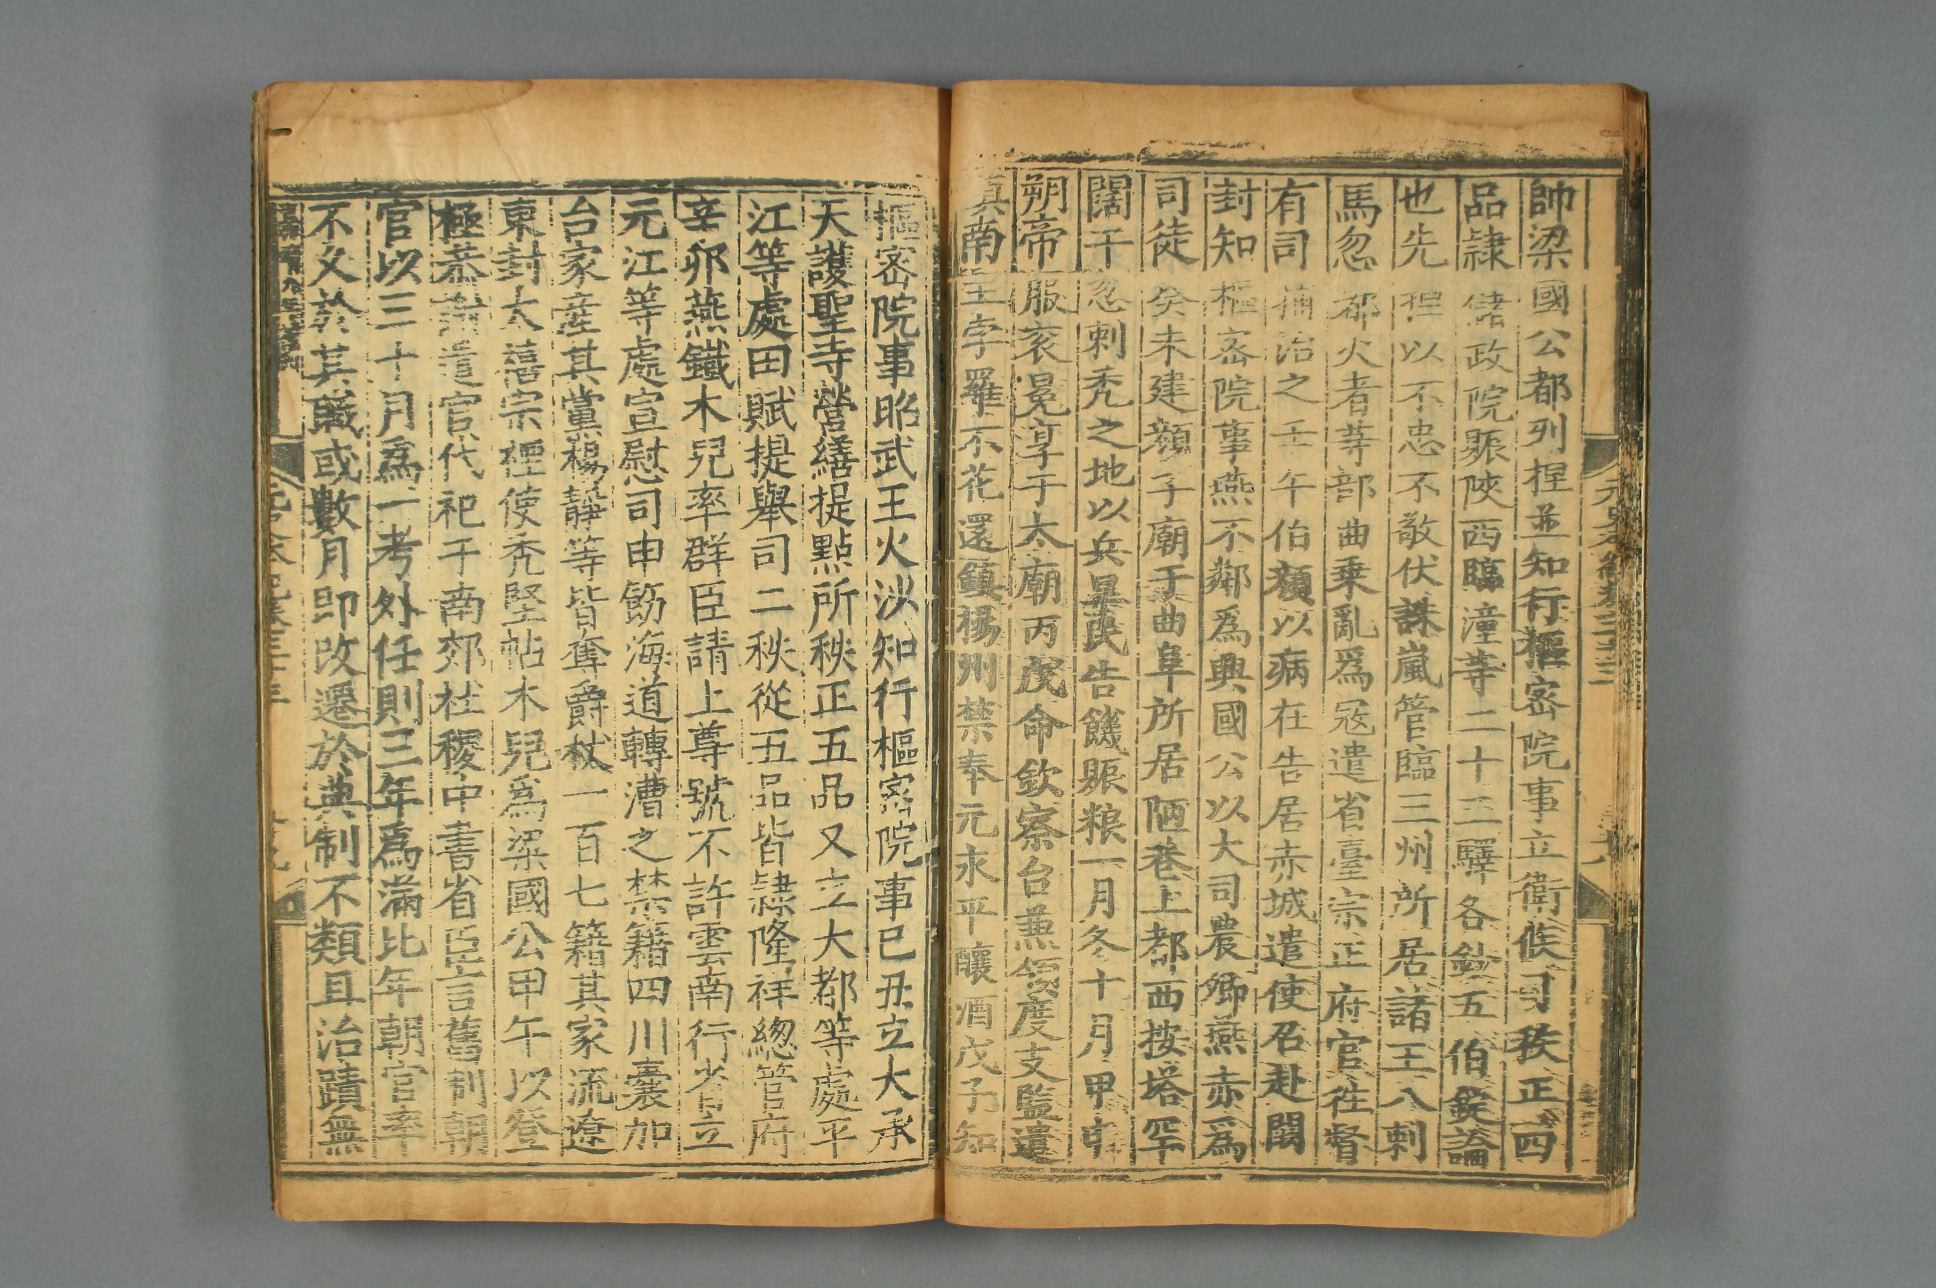 帥梁國公都列捏並知行樞密院事立衛候司秩正四
品隷儲政院賑陝西臨潼等二十三驛各鈔五伯錠論
也先捏以不忠不敬伏誅嵐管臨三州所居諸王八剌
馬忽都火者等部曲乗亂爲冦遣省臺宗正府官往督
有司捕治之壬午伯顏以病在告居赤城遣使召赴闕
封知樞密院事燕不鄰爲興國公以大司農卿燕赤爲
司徒癸未建顔子廟于曲阜所居陋巷上都西按塔罕
闊干忽剌禿之地以兵旱民告饑賑粮一月冬十月甲申
朔帝服衮冕享于太廟丙戌命欽察台兼領度支監遣
真南王孛羅不花還鎮楊州禁奉元永平釀酒戊子知
樞密院事昭武王火沙知行樞密院事己丑立大承
天護聖寺營繕提點所秩正五品又立大都等處平
江等處田賦提舉司二秩從五品皆隷隆祥緫管府
辛卯燕鐵木兒率群臣請上尊號不許雲南行省立
元江等處宣慰司申飭海道轉漕之禁籍四川囊加
台家産其黨楊靜等皆奪爵杖一百七籍其家流遼
東封太禧宗禋使秃堅帖木兒爲梁國公甲午以登
極恭謝遣官代祀于南郊社稷中書省臣言舊制朝
官以三十月爲一考外任則三年爲滿比年朝官率
不久於其職或數月即改遷於典制不類且治蹟無
元史本紀卷三十三